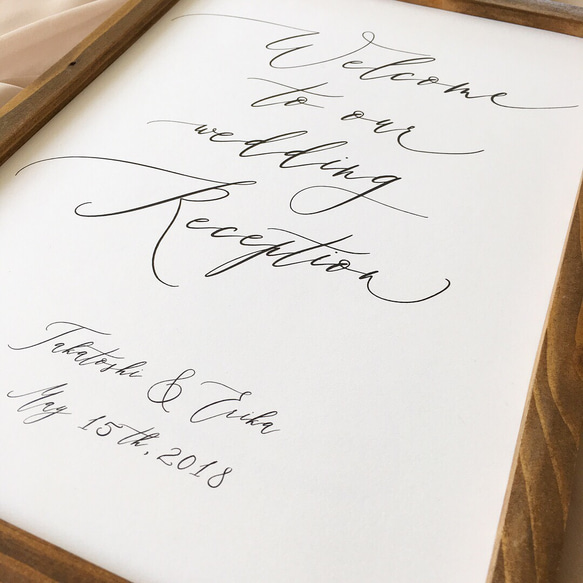 Welcome
to our
wedding
Reception
Takatoshi & Erika
May 15th, 2018